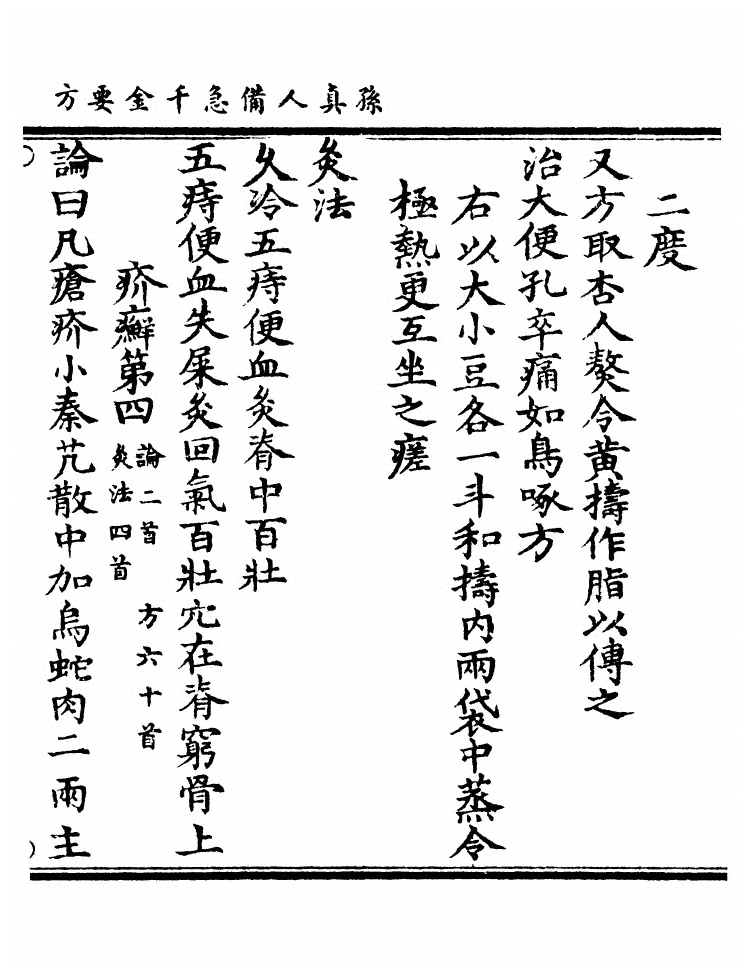 孫真人備急千金要方
二度
又方取杏人熬令黃擣作脂以傅之
治大便孔卒痛如鳥啄方
右以大小豆各一斗和擣內兩袋中蒸令
極熱更互坐之瘥
灸法
久冷五痔便血灸脊中百壯
五痔便血失屎灸回氣百壯穴在脊窮骨上
疥癬第四 論二首 方六十首 灸法四首
論曰凡瘡疥小秦艽散中加烏蛇肉二兩主